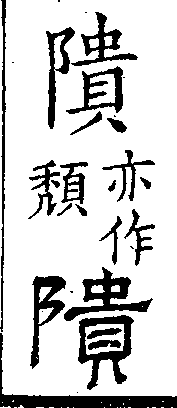 隤
亦作
頹
隤